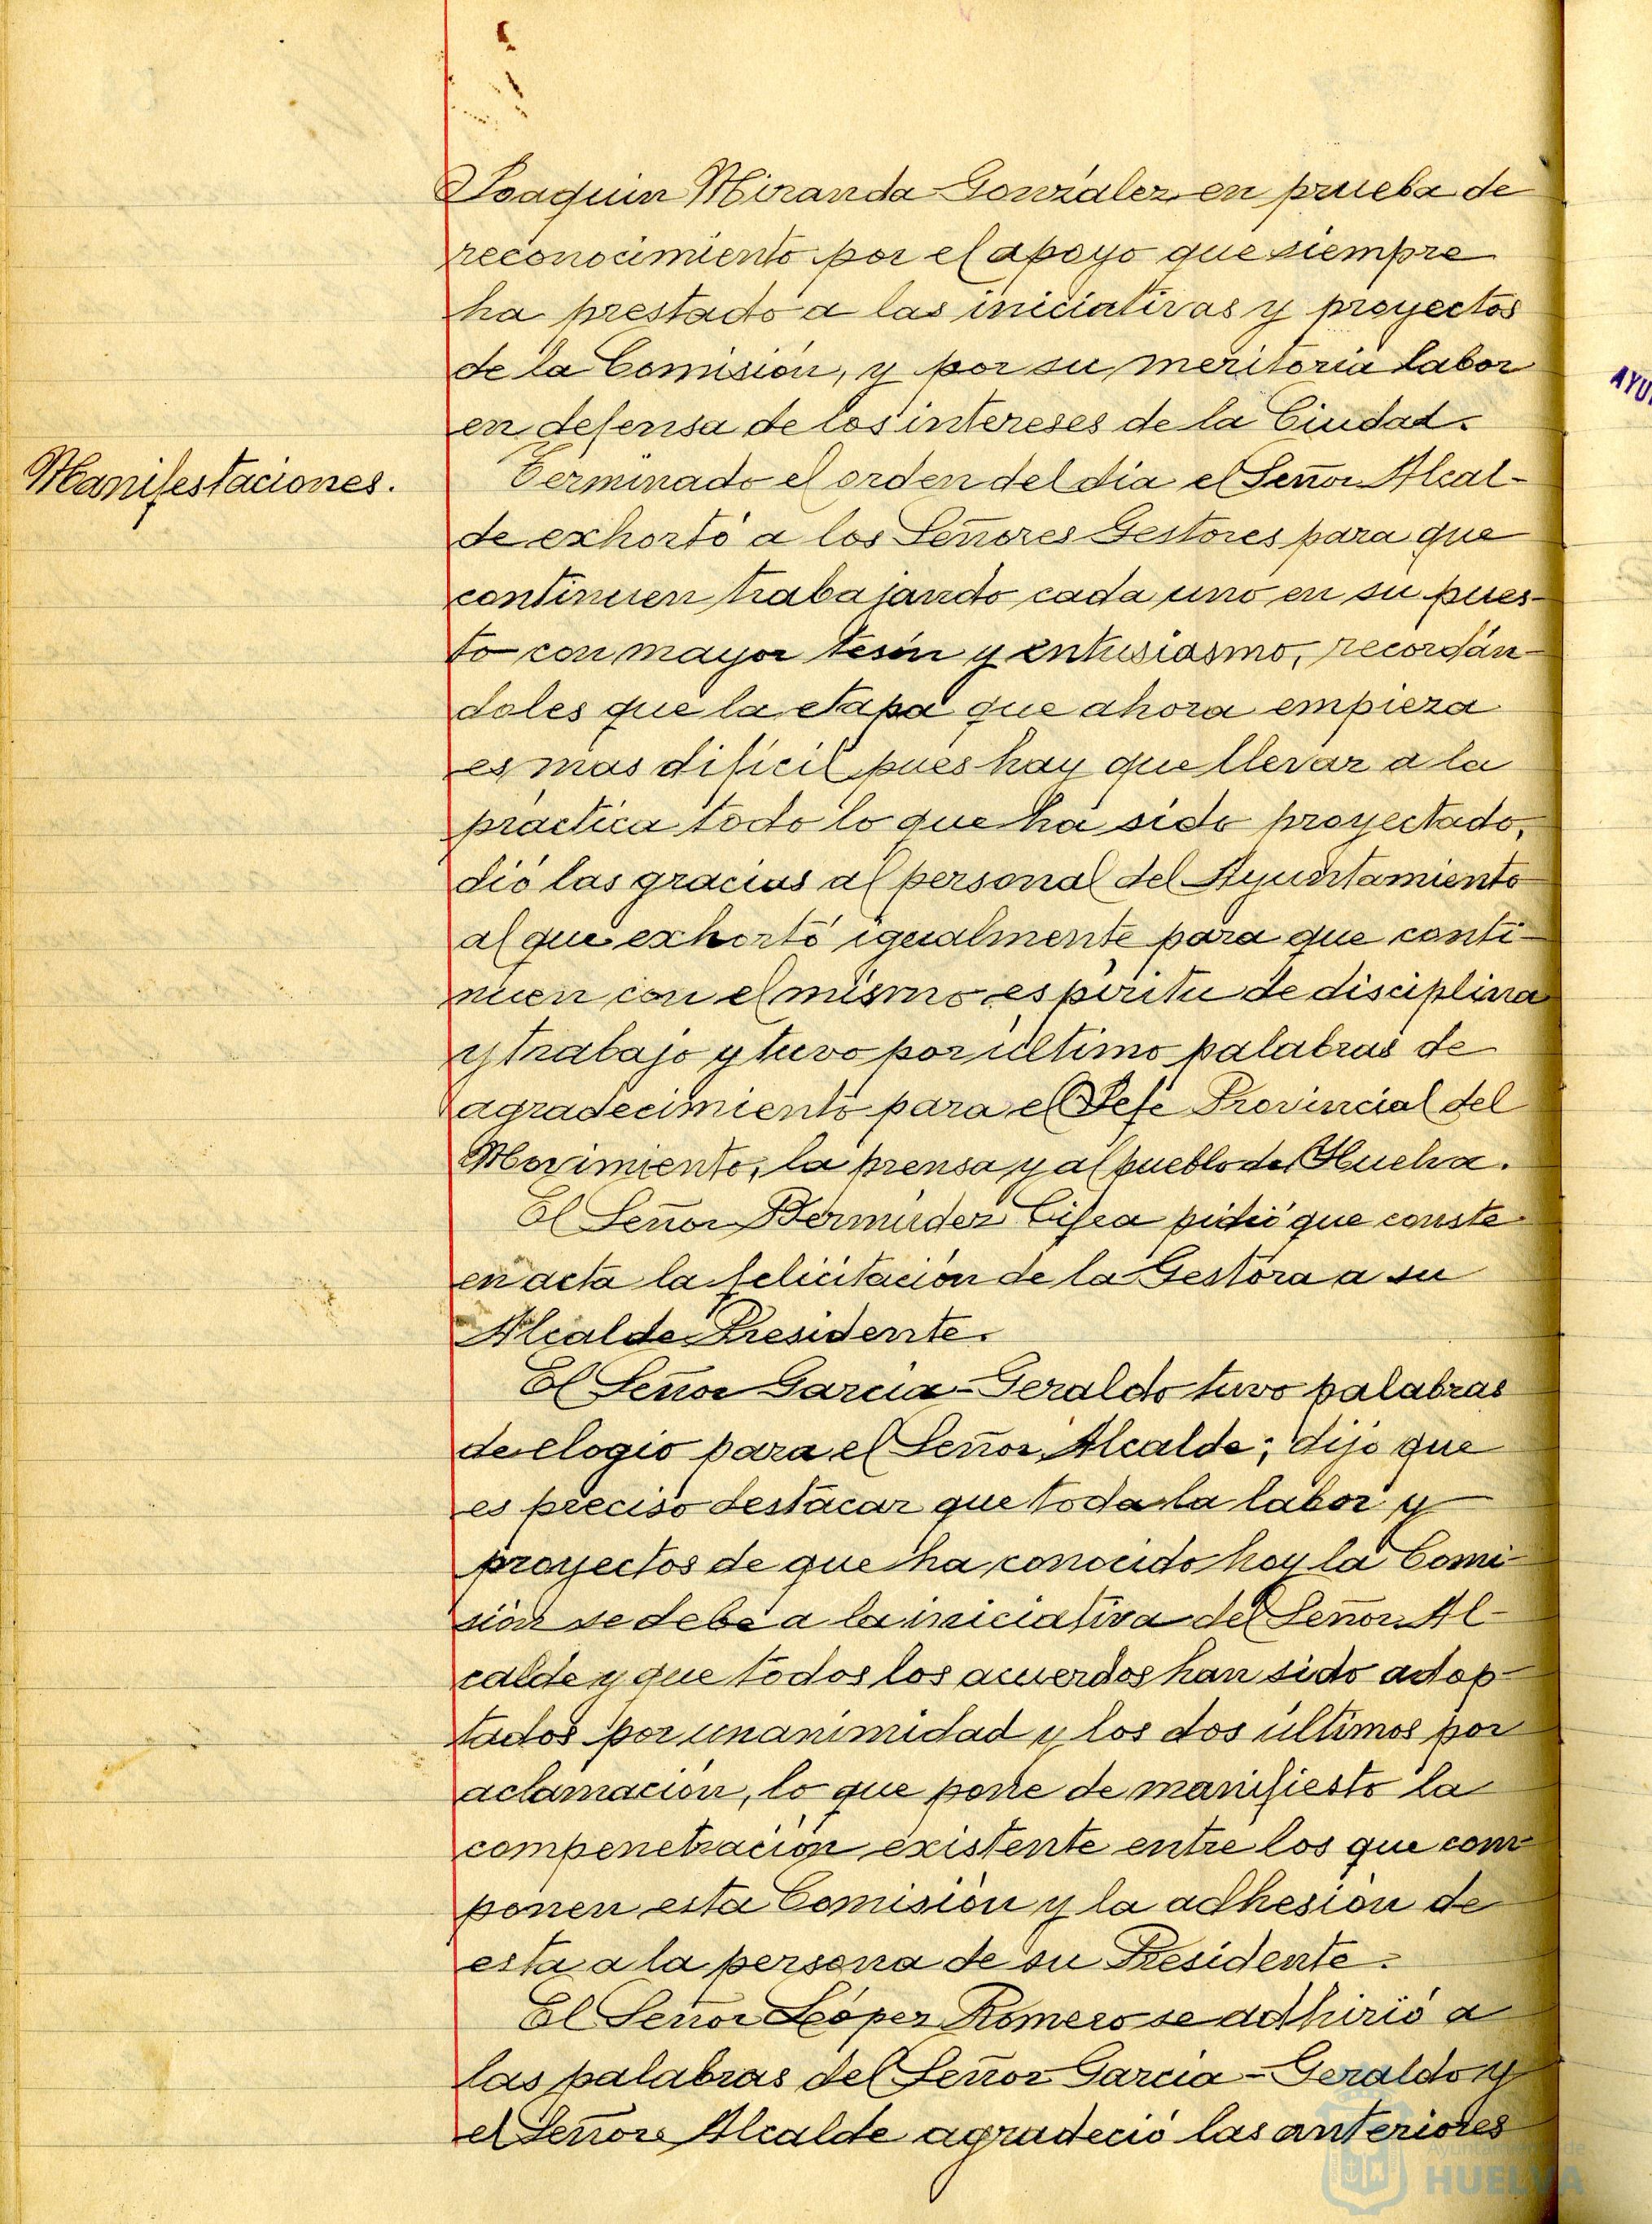 Joaquin Miranda Gonzalez en prueba de
reconocimiento por el apoyo que siempre
ha prestado a las iniciativas y proyectos
de la Comisión, y por su meritoria labor
en defensa de los intereses de la Ciudad.
Manifestaciones.
Terminado el orden del dia el Señor Alcal-
de exhortó a los Señores Gestores para que
continuen trabajando cada uno en su pues-
to con mayor tesón y entusiasmo, recordán-
doles que la etapa que ahora empieza
es mas dificil pues hay que llevar a la
práctica todo lo que ha sido proyectado,
dió las gracias al personal del Ayuntamiento
al que exhortó igualmente para que conti-
nuen con el mismo espiritu de disciplina
y trabajo y tuvo por último palabras de
agradecimiento para el Jefe Provincial del
Movimiento, la prensa y al pueblo de Huelva.
El Señor Bermudez Cifea pidió que conste
en acta la felicitación de la Gestora a su
Alcalde Presidente.
El Señor Garcia-Geraldo tuvo palabras
de elogio para el Señor Alcalde; dijo que
es preciso destacar que toda la labor y
proyectos de que ha conocido hoy la Comi-
sión se debe a la iniciativa del Señor Al-
calde y que todos los acuerdos han sido adop-
tados por unanimidad y los dos últimos por
aclamación, lo que pone de manifiesto la
compenetración existente entre los que com-
ponen esta Comisión y la adhesión de
esta a la persona de su Presidente.
El Señor López Romero se adhirió a
las palabras del Señor Garcia-Geraldo y
el Señor Alcalde agradeció las anteriores
AYU
Ayuntamiento de
HUELVA